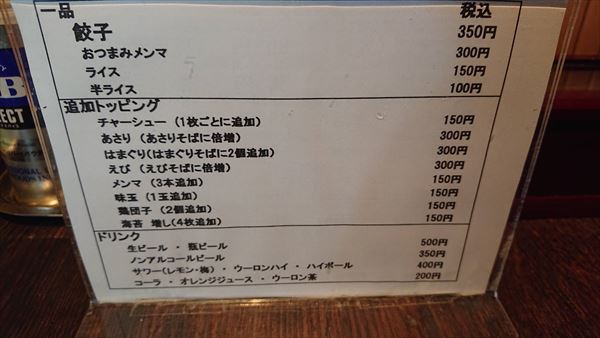 一品 税込
餃子 350円
おつまみメンマ 300円
ライス 150円
半ライス 100円
追加トッピング
チャーシュー（1枚ごとに追加） 150円
あさり（あさりそばに倍増） 300円
はまぐり(はまぐりそばに2個追加) 300円
えび（えびそばに倍増） 300円
メンマ（3本追加） 150円
味玉（1玉追加） 150円
鶏団子（2個追加） 150円
海苔 増し(4枚追加) 150円
ドリンク
生ビール ・ 瓶ビール 500円
ノンアルコールビール 350円
サワー(レモン・梅) ・ ウーロンハイ ・ ハイボール 400円
コーラ ・ オレンジジュース ・ ウーロン茶 200円